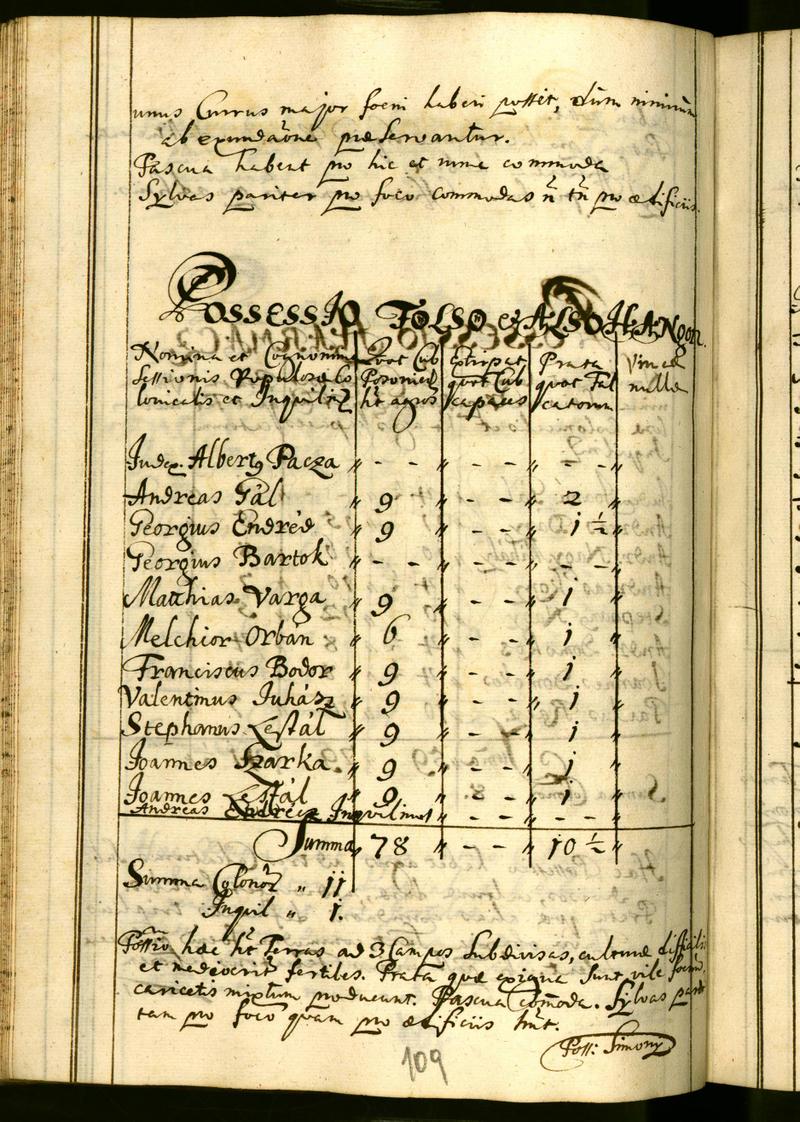 unus Currus major foeni haberi possit, dum nimirum
ab exundaõne praeservantur.
Pascua habent pro hic et nunc commoda
Sylvas pariter pro foco commodas ñ tñ pro aedificiis.
POSSESSIO FÖLSÖ et ALSO HANGON.
Nomina et Cognomina
Sessionis Populosae Co
lonicalis et Inquili
Quot Cub
Posonien
hñt agros
Extirpat
quot Cub
capaces
Prata
quot Fal
catorum
Vineae
nullae
Judex Albert9 Pacza " - - " - - " - - "
Andreas Gál " 9 " - - " 2 "
Georgius Endréd " 9 " - - " 1 ½ "
Georgius Bartok " - - " - - " - - "
Matthias Varga " 9 " - - " 1 "
Melchior Orbán " 6 " - - " 1 "
Franciscus Bodor " 9 " - - " 1 "
Valentinus Juhász " 9 " - - " 1 "
Stephanus Lestál " 9 " - - " 1 "
Joannes Szarka " 9 " - - " 1 "
Joannes Lestál " 9 " - - " 1 "
Andreas Inquilinus " - - " - - "
Summa " 78 " - - " 10 ½ "
Summa Colonor " 11
Inquil " 1.
Possio haec hñt Terras ad 3 Campos subdivisas, culturae difficilis
et mediocrit fertiles. Prata quae exigua sunt, vile foenum
caricetis mixtum producunt. Pascua com̃oda. Sylvas pari
tam pro foco quam pro aedificiis hñt.
Poss: Simony
109